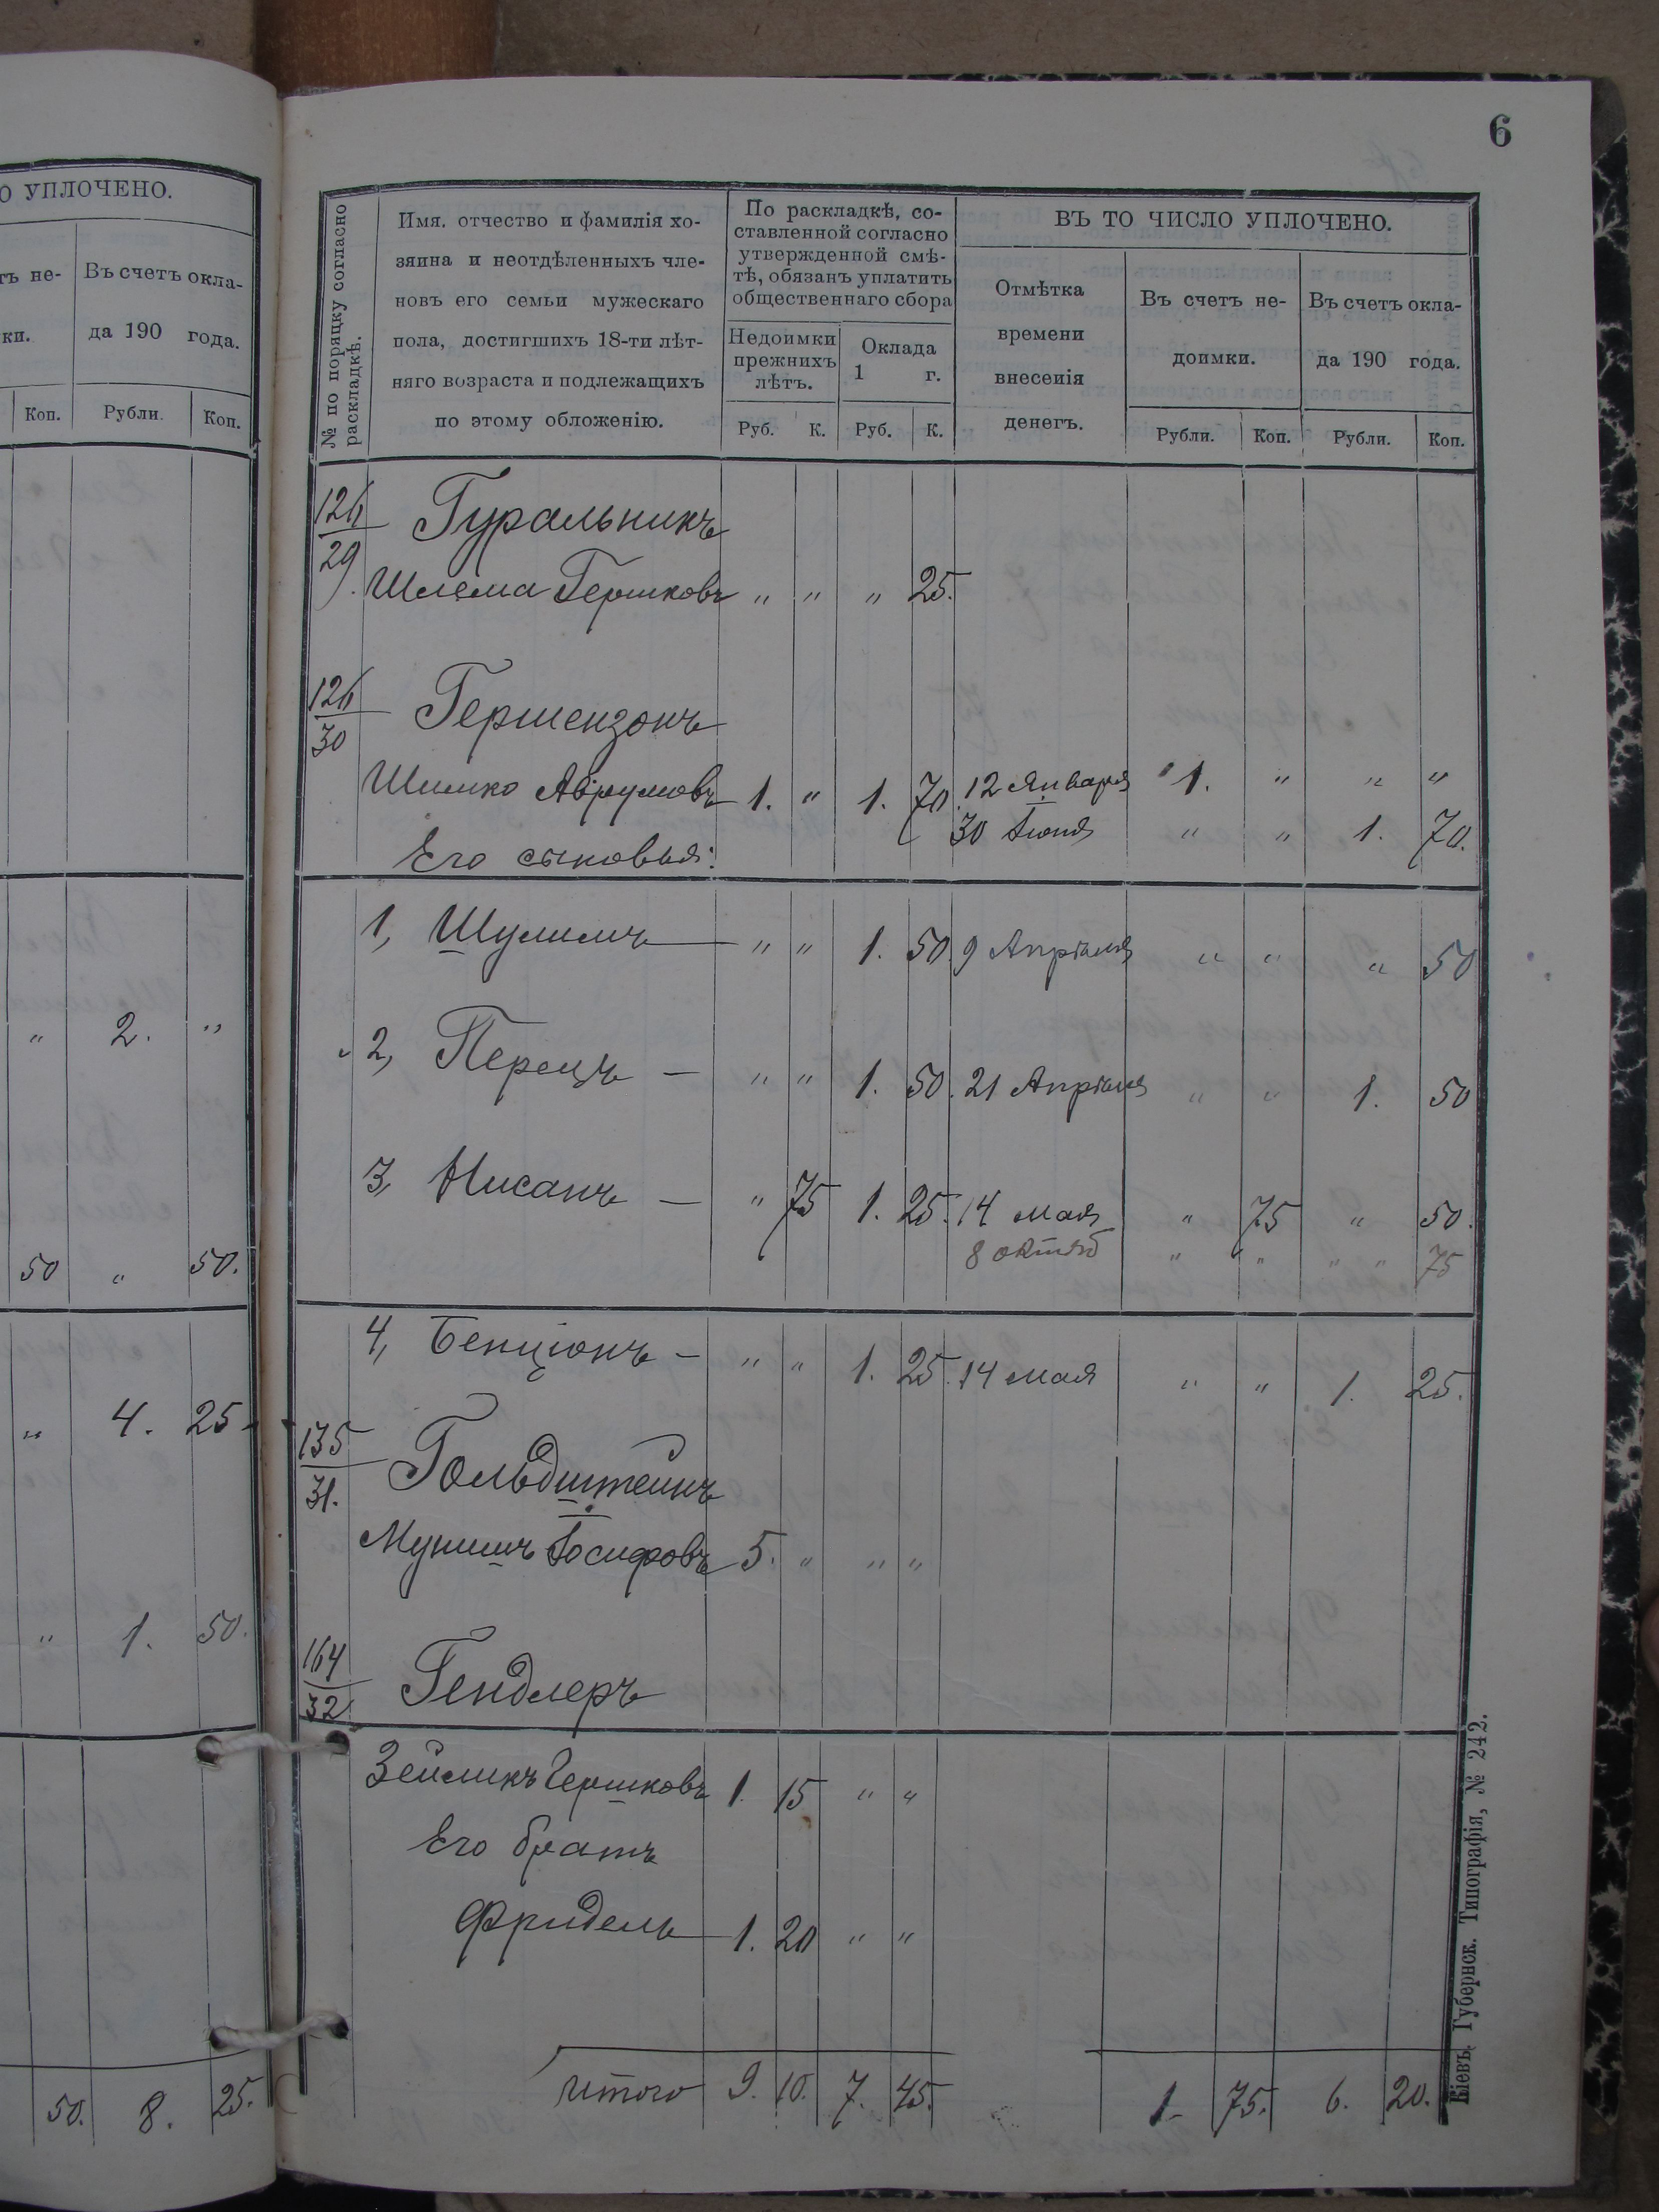 О УПЛОЧЕНО.
ть не- Въ счетъ окла-
ки. да 190 года.
Коп. Рубли. Коп.
„ 2. „
50 „ 50.
„ 4. 25
„ 1. 50.
50. 8. 25.
6
№ по порядку согласно раскладкѣ.
Имя, отчество и фамилія хо-
зяина и неотдѣленныхъ чле-
новъ его семьи мужескаго
пола, достигшихъ 18-ти лѣт-
няго возраста и подлежащихъ
по этому обложенію.
По раскладкѣ, со-
ставленной согласно
утвержденной смѣ-
тѣ, обязанъ уплатить
общественнаго сбора
Недоимки
прежнихъ
лѣтъ.
Оклада
1 г.
Руб. К. Руб. К.
ВЪ ТО ЧИСЛО УПЛОЧЕНО.
Отмѣтка
времени
внесенія
денегъ.
Въ счетъ не-
доимки.
Въ счетъ окла-
да 190 года.
Рубли. Коп. Рубли. Коп.
126/29 Гуральникъ
Шлема Гершковъ „ „ „ 25.
126/30 Гершензонъ
Шимко Аврумовъ 1. „ 1. 70. 12 Января 1. „ „ „
30 Іюня „ „ 1. 70.
Его сыновья:
1, Шулимъ — „ „ 1. 50 9 Апрѣля „ „ „ 50
2, Перецъ — „ „ 1. 50. 21 Апрѣля „ „ 1. 50
3, Нисанъ — „ 75 1. 25. 14 мая „ 75 „ 50.
8 октяб „ „ „ „ 75
4, Бенціонъ — „ „ 1. 25. 14 мая „ „ 1. 25.
135/31. Гольдштейнъ
Мунишъ Іосифовъ 5. „ „ „
164/32 Гендлеръ
Зейликъ Гершковъ 1. 15 „ „
Его братъ
Фридель — 1. 20 „ „
Итого 9. 10. 7. 45. 1. 75. 6. 20.
Кіевъ. Губернск. Типографія, № 242.